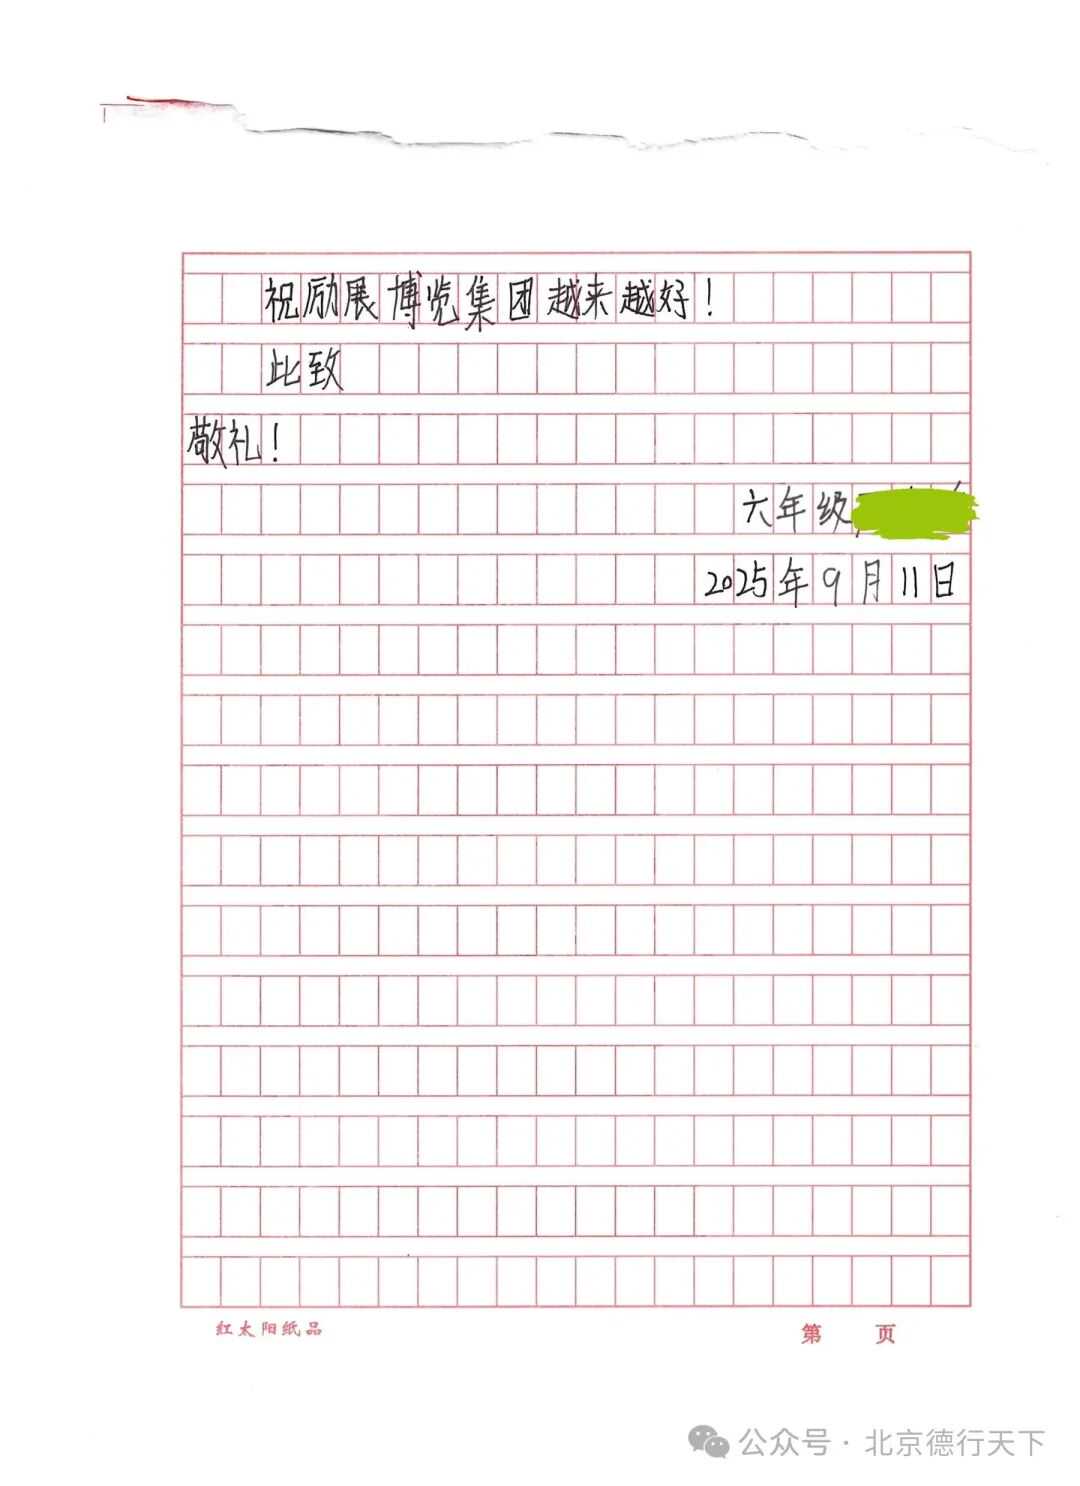 祝励展博览集团越来越好！
此致
敬礼！
六年级
2025年9月11日
红太阳纸品
第 页
公众号·北京德行天下